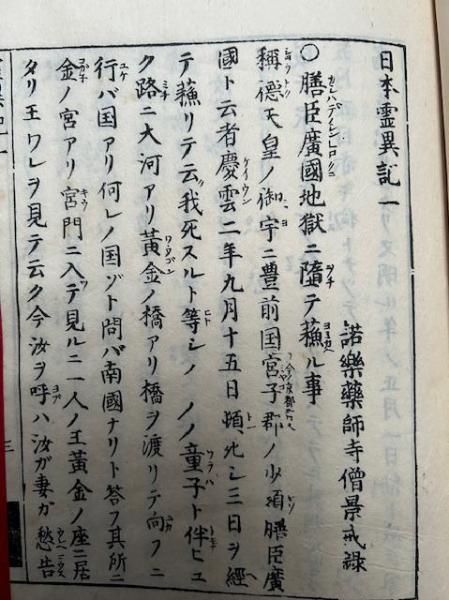 日本霊異記一
諾樂藥師寺僧景戒録
○膳臣廣國地獄ニ墮テ蘓ル事
稱德天皇ノ御宇ニ豊前国宮子郡ノ少領膳臣廣
國ト云者慶雲二年九月十五日頓ニ死シ三日ヲ經
テ蘓リテ云ク我死スルト等シク 童子ト伴ヒユ
ク路ニ大河アリ黃金ノ橋アリ橋ヲ渡リテ向フニ
行バ国アリ何レノ国ゾト問バ南國ナリト答フ其所ニ
金ノ宮アリ宮門ニ入テ見ルニ一人ノ王黃金ノ座ニ居
タリ王ワレヲ見テ云ク今汝ヲ呼ハ汝ガ妻ガ愁告